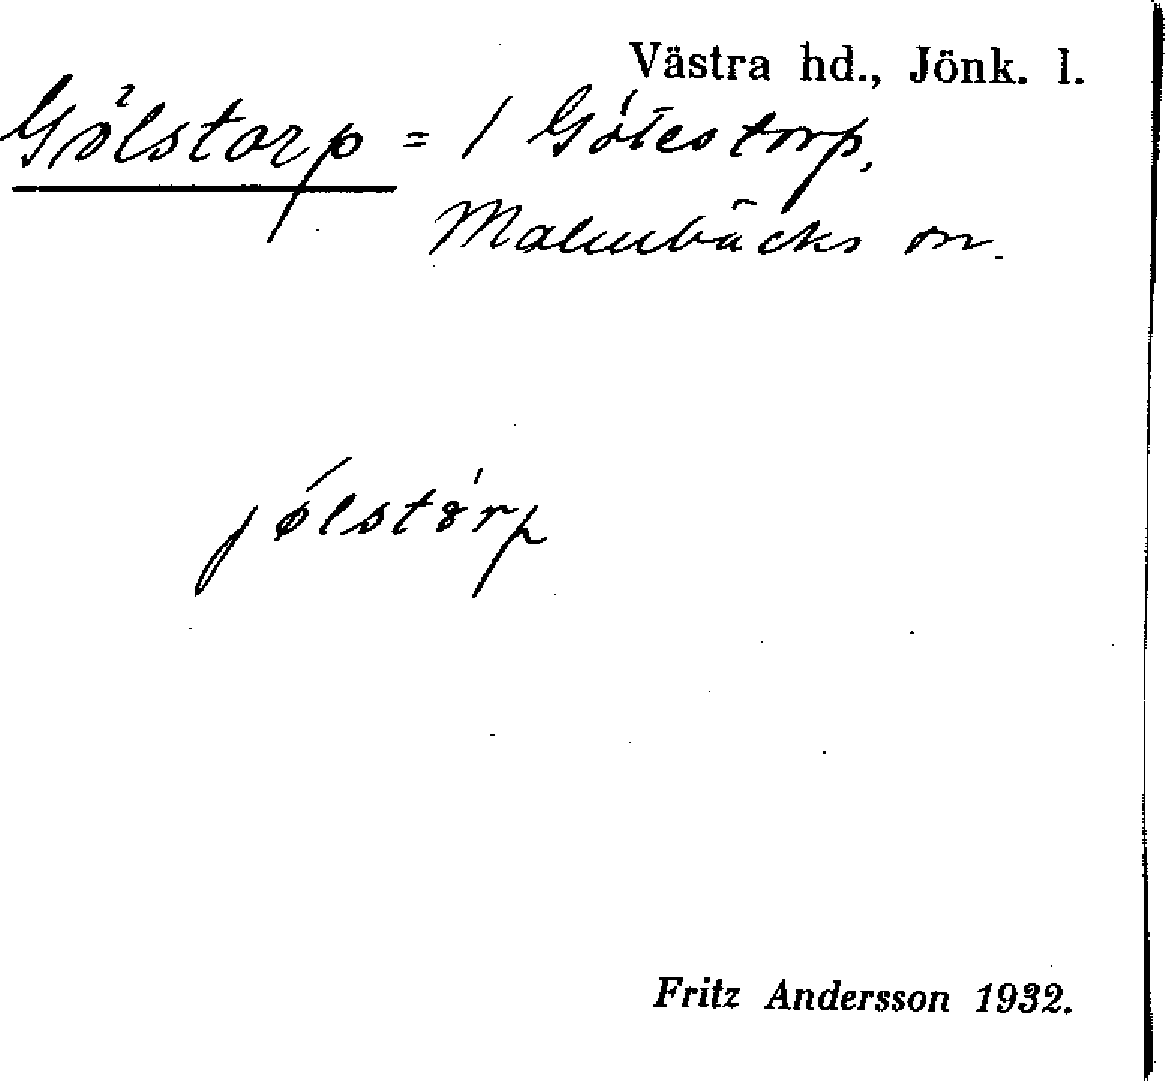 Västra hd., Jönk. l.
Gölstorp = / Götestorp,
Malmbäcks sn.
jølstörp
Fritz Andersson 1932.